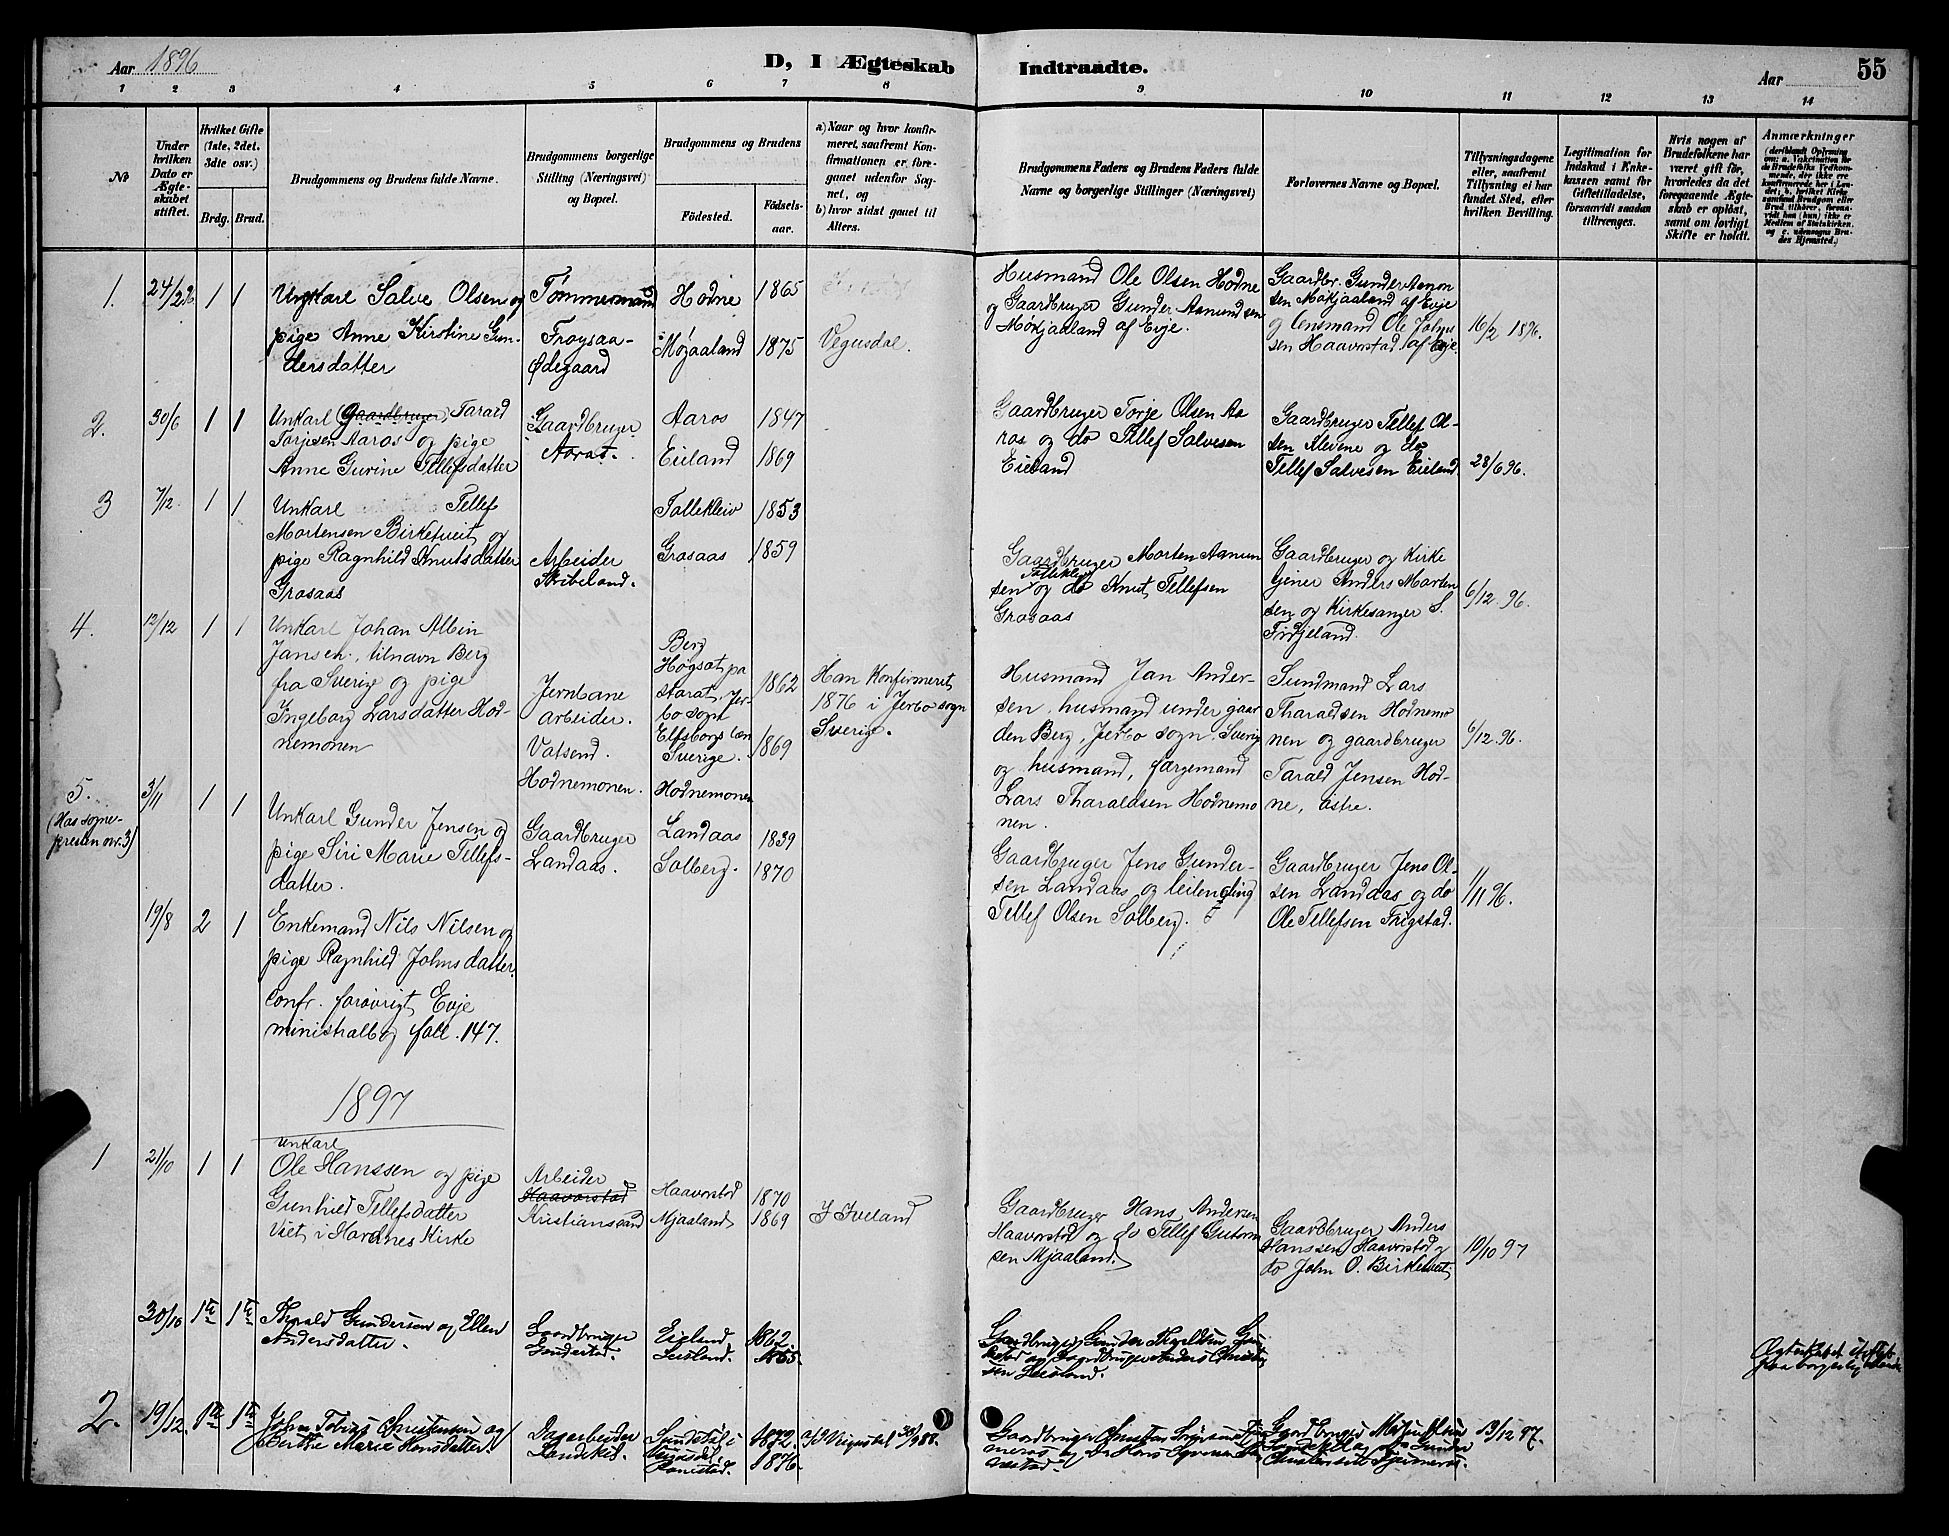 Aar 1896
D, I Ægteskab Indtraadte.
Aar
55
1 2 3 4 5 6 7 8 9 10 11 12 13 14
No
Under hvilken Dato er Ægteskabet stiftet.
Hvilket Gifte (1ste, 2det. 3die osv.)
Brdg. Brud.
Brudgommens og Brudens fulde Navne.
Brudgommens borgerlige Stilling (Næringsvei) og Bopæl.
Brudgommens og Brudens
Fødested.
Fødsels-aar.
a) Naar og hvor konfirmeret, saafremt Konfirmationen er foregaaet udenfor Sognet, og
b) hvor sidst gaaet til Alters.
Brudgommens Faders og Brudens Faders fulde Navne og borgerlige Stillinger (Næringsvei)
Forlovernes Navne og Bopæl.
Tillysningsdagene eller, saafremt Tillysning ei har fundet Sted, efter hvilken Bevilling.
Legitimation for Indskud i Enkekassen samt for Giftetilladelse, forsaavidt saadan tiltrænges.
Hvis nogen af Brudefolkene har været gift før, hvorledes da det foregaaende Ægteskab er opløst, samt om lovligt Skifte er holdt.
Anmærkninger
1. 24/2 96 1 1
Ungkarl Salve Olsen og
pige Anne Kirstine Gun-
dersdatter
Tømmermand
Frøysaa-
Ødegaard
Hodne 1865
Møgaaland 1875
Vegusdal.
Husmand Ole Olsen Hodne
og Gaardbruger Gunder Aanundsen
Møkjaaland af Evje.
Gaardbr. Gunder Aanon
sen Mokjaaland af Evje
og lensmand Ole Johns
sen Haavorstad af Evje.
16/2 1896.
2. 30/6 1 1
Unkarl (Gaardbruger) Tarald
Torjesen Aaros og pige
Anne Gurine Tellefsdatter
Gaardbruger
Aarat.
Aaros 1847
Eieland 1869
Gaardbruger Torje Olsen Aa
ros og do Tellef Salvesen
Eieland
Gaardbruger Tellef Ol-
sen Klevene og do
Tellef Salvesen Eieland
28/6 96.
3 7/12. 1 1
Unkarl Tellef
Mortensen Birketveit og
pige Ragnhild Knutsdatter
Grosaas
Arbeider
Skibeland.
Tallekleiv 1853
Grosaas 1859
Gaardbruger Morten Aanun
Tallekleiv
sen og do Knut Tellefsen
Grosaas
Gaardbruger og Kirke
tjener Anders Morten
sen og Kirkesanger S.
6/12. 96.
4. 12/12 1 1
Unkarl Johan Albin
Jansen, tilnavn Berg
fra Sverige og pige
Ingeborg Larsdatter Hod-
nemonen
Jernbane
arbeider.
Vatsend.
Hodnemonen.
Berg
Høgsæt pa
starat, Jer-
bo sogn
Elfsborgs læn
Sverige.
Hodnemonen
1862
1869
Han Konfirmeret
1876 i Jerbo sogn
Sverige.
Husmand Jan Ander-
sen, husmand under gaar
den Berg, Jerbo sogn, Sverig
og husmand, færgemand
Lars Tharaldsen Hodnemo
nen.
Sundmand Lars
Tharaldsen Hodnemo
nen og gaardbruger
Tarald Jensen Hod-
ne, østre.
6/12. 96.
5. 3/11 1 1
(Hos sogne-
presten nr. 3)
Unkarl Gunder Jensen og
pige Siri Marie Tellefs-
datter.
Gaardbruger
Landaas.
Landaas 1839
Solberg. 1870
Gaardbruger Jens Gunder-
sen Landaas og leilending
Tellef Olsen Solberg.
Gaardbruger Jens Ol-
sen Landaas og do
Ole Tellefsen Frigstad.
1/11 96.
19/8 2 1
Enkemand Nils Nilsen og
pige Ragnhild Johnsdatter.
Confr. forøvrigt Evje
ministralbog foll. 147.
1897
1 21/10 1 1
Unkarl
Ole Hanssen og pige
Gunhild Tellefsdatter
Viet i Hornnes Kirke
Arbeider
Haavorstad
Kristianssand
Haavorstod 1870
Mjaaland 1869
I Iveland
Gaardbruger Hans Andersen
Haavorstod og do Tellef Gutorm
sen Mjaaland.
Gaardbruger Anders
Hanssen Haavorstod og
do John O. Birketveit.
10/10 97
30/10 1te 1te
Tharald Gundersen og Ellen
Andersdatter.
Gaardbruger
Eieland 1862
Leisland. 1865.
Gaardbruger Gunder Tharaldsen
og Gaardbruger Anders Christen
sen Leisland.
Ægteskabet stiftet
paa borgerlig
2. 19/12. 1te 1te
John Tobias Christensen og
Berthe Marie Hansdatter.
Dagarbeider
Landkil.
1872.
1876.
Vegusdal
Gaardbruger Christen
Gaardbruger
13/12 97.